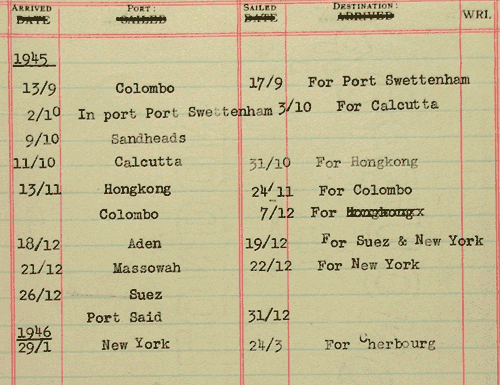 ARRIVED PORT: SAILED DESTINATION:
DATE SAILED DATE ARRIVED WRI.
1945
13/9 Colombo 17/9 For Port Swettenham
2/10 In port Port Swettenham 3/10 For Calcutta
9/10 Sandheads
11/10 Calcutta 31/10 For Hongkong
13/11 Hongkong 24/11 For Colombo
Colombo 7/12 For Hongkong
18/12 Aden 19/12 For Suez & New York
21/12 Massowah 22/12 For New York
26/12 Suez
Port Said 31/12
1946
29/1 New York 24/3 For Cherbourg